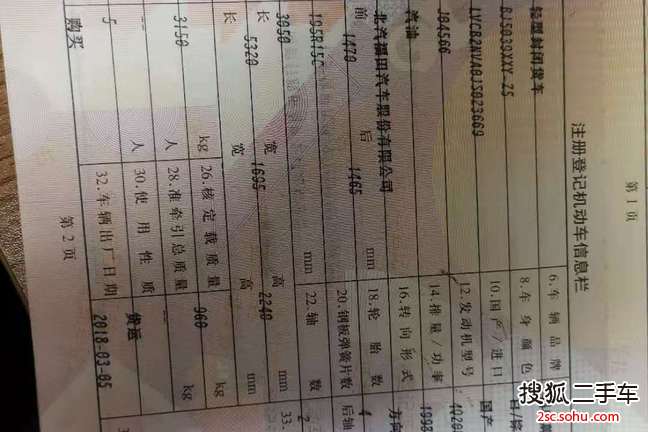 第 1 页
注册登记机动车信息栏
轻型封闭货车 6.车辆品牌
BJ5039XXY-Z5 8.车身颜色
LVCB2NVA0JS023669 10.国产/进口 国产
JB4566 12.发动机型号
汽油 14.排量/功率
北汽福田汽车股份有限公司 16.转向形式 方向
前 1470 后 1465 mm 18.轮胎数 4
20.钢板弹簧片数 后轴
3050 mm 22.轴数 2
长 5320 宽 1695 高 2240 mm 33.
长 宽 高 mm
3150 kg 26.核定载质量 960 kg
人 28.准牵引总质量 kg
5 人 30.使用性质 货运
购买 32.车辆出厂日期 2018-03-05
第 2 页
搜狐二手车
2sc.sohu.com